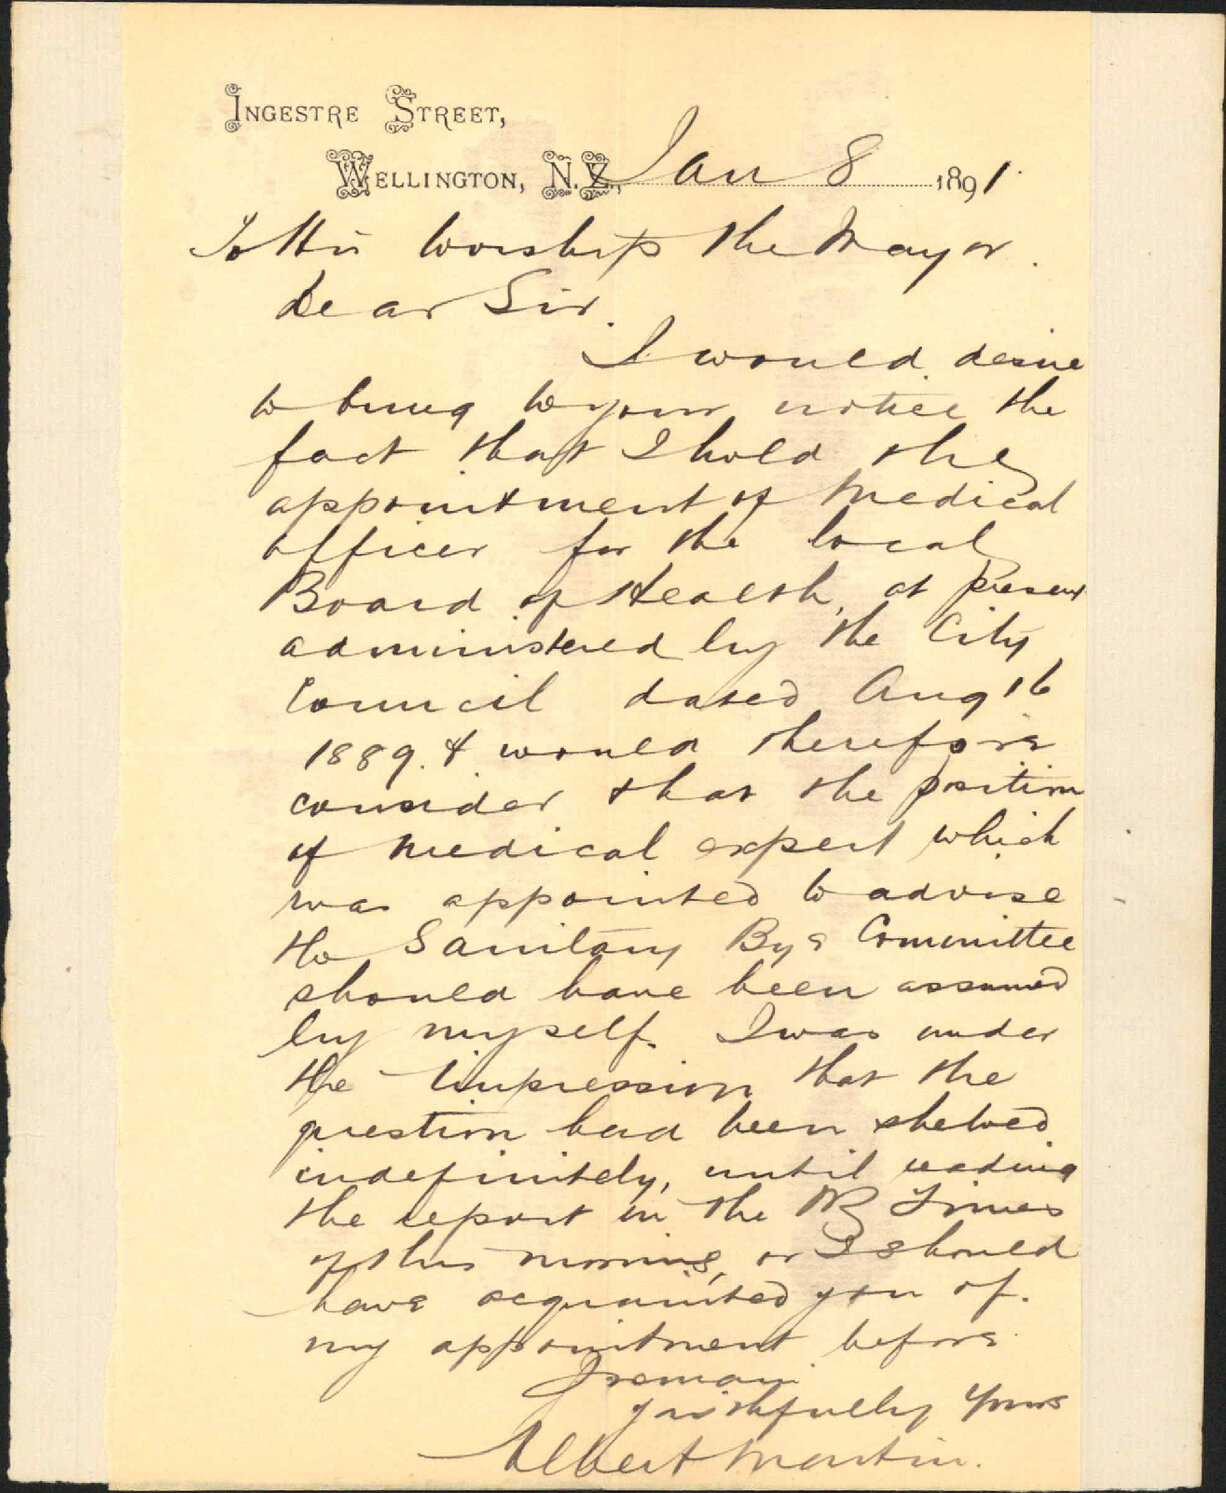 INGESTRE STREET,
WELLINGTON, N.Z., Jan 8 1891.
To His Worship the Mayor.
Dear Sir.
I would desire
to bring to your notice the
fact that I hold the
appointment of Medical
officer for the local
Board of Health, at present
administered by the City
Council dated Aug 16
1889. & would therefore
consider that the position
of medical expert which
was appointed to advise
the Sanitary Committee
should have been assumed
by myself. I was under
the impression that the
question had been shelved
indefinitely, until reading
the report in the NZ Times
of this morning, or I should
have acquainted you of.
my appointment before
I remain
faithfully yours
Albert Martin.